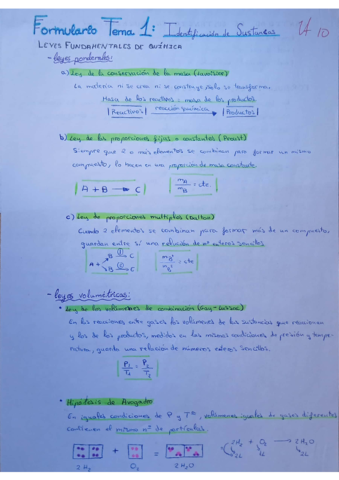 Formulario Tema 1: Identificación de Sustancias
LEYES FUNDAMENTALES DE QUÍMICA
- Leyes ponderales:
a) Ley de la conservación de la masa (Lavoisier)
La materia ni se crea ni se destruye, sólo se transforma.
Masa de los reactivos = masa de los productos
| Reactivos | reacción química → | Productos |
b) Ley de las proporciones fijas o constantes (Proust)
Siempre que 2 o más elementos se combinan para formar un mismo
compuesto, lo hacen en una proporción de masa constante.
A + B → C
mA / mB = cte
c) Ley de proporciones múltiples (Dalton)
Cuando 2 elementos se combinan para formar más de un compuesto,
guardan entre sí una relación de nº enteros sencillos
A + B ① → C
B ② → C
= cte
- Leyes volumétricas:
• Ley de los volúmenes de combinación (Gay-Lussac)
En las reacciones entre gases los volúmenes de las sustancias que reaccionan
y los de los productos, medidos en las mismas condiciones de presión y tempe-
ratura, guardan una relación de números enteros sencillos.
P1 / T1 = P2 / T2
• Hipótesis de Avogadro
En iguales condiciones de P y Tª, volúmenes iguales de gases diferentes
contienen el mismo nº de partículas.
+ =
2 H2 O2 2 H2O
2H2 + O2 → 2H2O